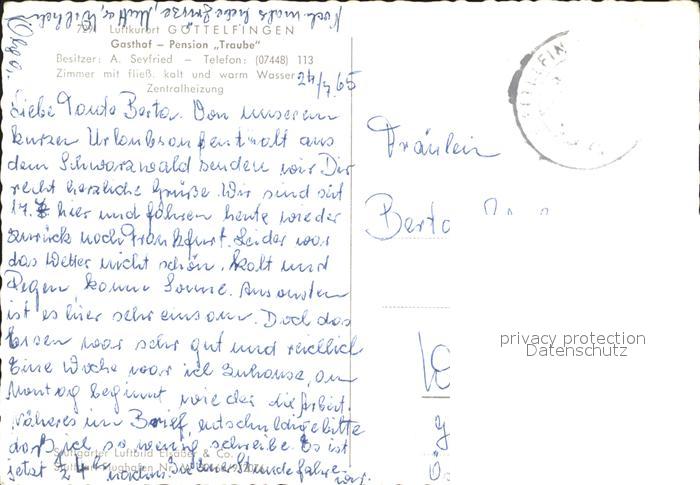 Nochmals liebe Grüsse, Mutti, Wilhelm
Olga.
Luftkurort GÖTTELFINGEN
Gasthof – Pension „Traube"
Besitzer: A. Seyfried – Telefon: (07448) 113
Zimmer mit fließ. kalt und warm Wasser
Zentralheizung
24/7.65
Liebe Tante Berta. Von unserem
kurzen Urlaubsaufenthalt aus
dem Schwarzwald senden wir Dir
recht herzliche Grüße. Wir sind seit
17. hier und fahren heute wieder
zurück nach Frankfurt. Leider war
das Wetter nicht schön. Kalt und
Regen kaum Sonne. Ansonsten
ist es hier sehr einsam. Doch das
Essen war sehr gut und reichlich
Eine Woche war ich zuhause, am
Montag beginnt wieder die Arbeit.
Näheres im Brief, entschuldige bitte
daß ich so wenig schreibe. Es ist
jetzt nachm. Stunde fahren
wir.
Stuttgarter Luftbild Elsäßer & Co.
Stuttgart Flughafen Nr.
Fräulein
Berta
privacy protection
Datenschutz